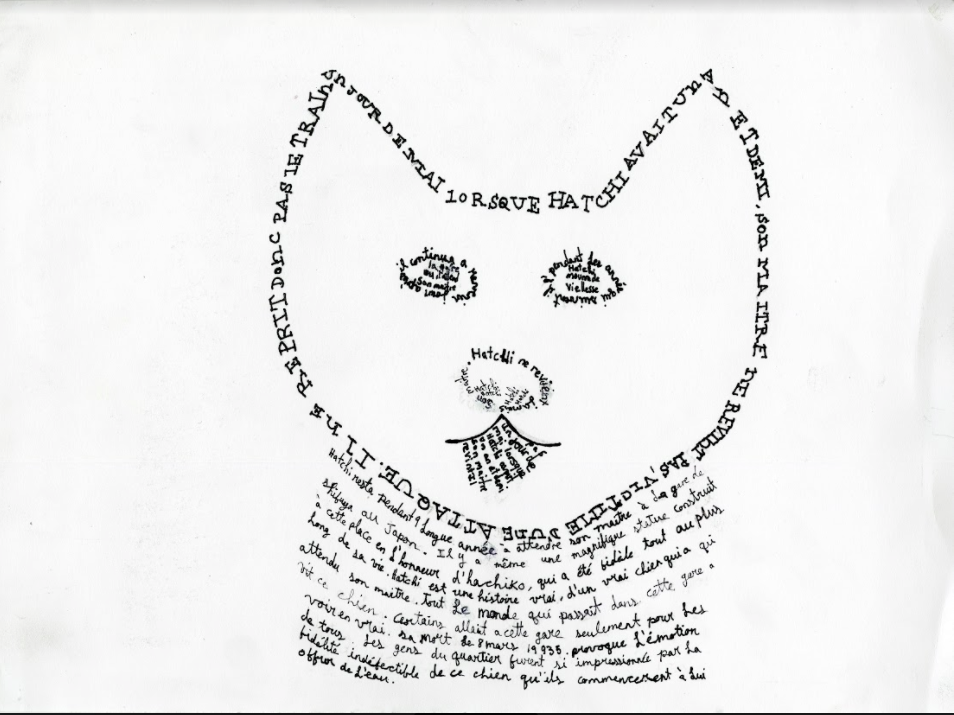 UN JOUR DE MAI lORSQUE HATCHI AVAIT UN A
N ET DEMI, SON MAITRE NE REVINT PAS, VICTIME D'UNE ATTAQUE. Il NE REPRIT DONC PAS lE TRAIN
il continua a
la gare
son maitre
pendant des années
Hatchi
mourut de
vielesse
Hatchi ne revient jamais
son maitre.
un jour de
mai lorsque
Hatchi avait
un an et demi
son maitre
revint
Hatchi resta pendant 9 longue année a attendre son maître à la gare de
Shibuya au Japon. Il y a même une magnifique statue construit
à cette place en l'honneur d'hachiko, qui a été fidèle tout au plus
long de sa vie. hatchi est une histoire vrai, d'un vrai chien qui a
attendu son maitre. Tout le monde qui passait dans cette gare a
vit ce chien. Certains allait a cette gare seulement pour les
voir en vrai. sa mort le 8 mars 19935. provoque l'émotion
de tous. Les gens du quartier furent si impressionnée par la
fidélité indéfectible de ce chien qu'ils commencerent à lui
offrir de l'eau.